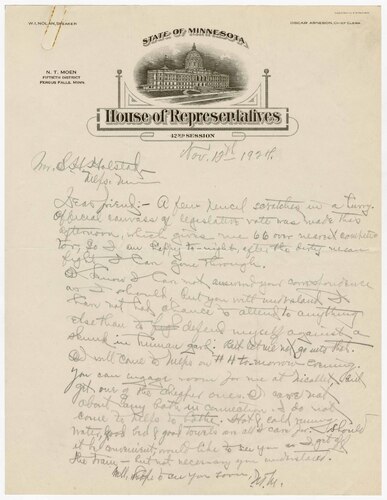 W.I. NOLAN, SPEAKER
OSCAR ARNESON, CHIEF CLERK
STATE OF MINNESOTA
N. T. MOEN
FIFTIETH DISTRICT
FERGUS FALLS, MINN.
House of Representatives
42ND SESSION
Nov. 12th 1924.
Mr. S.H. Holstad,
Mpls. Minn
Dear friend:- A few pencil scratches in a hurry.
Official canvass of legislative vote was made this
afternoon, which gives me 66 over nearest competi-
tor, So I am safe to-night, after the dirty mean
fight I have gone through.
I know I have not answered your correspondence
as I should, but you will understand I
have not had chance to attend to anything
else than to defend myself against a
skunk in human garb. But let me not go into that.
I will come to Mpls on #4 to-morrow evening.
You can engage room for me at Nicollet, but
get one of the cheaper ones. I care not
about any bath in connection. I do not
come to Mpls to bathe. Hot & cold running
water, good bed & good towels an all I care for. Should
it be convenient, would like to see you as I get off
the train - but not necessary you understand.
Well, hope to see you soon,